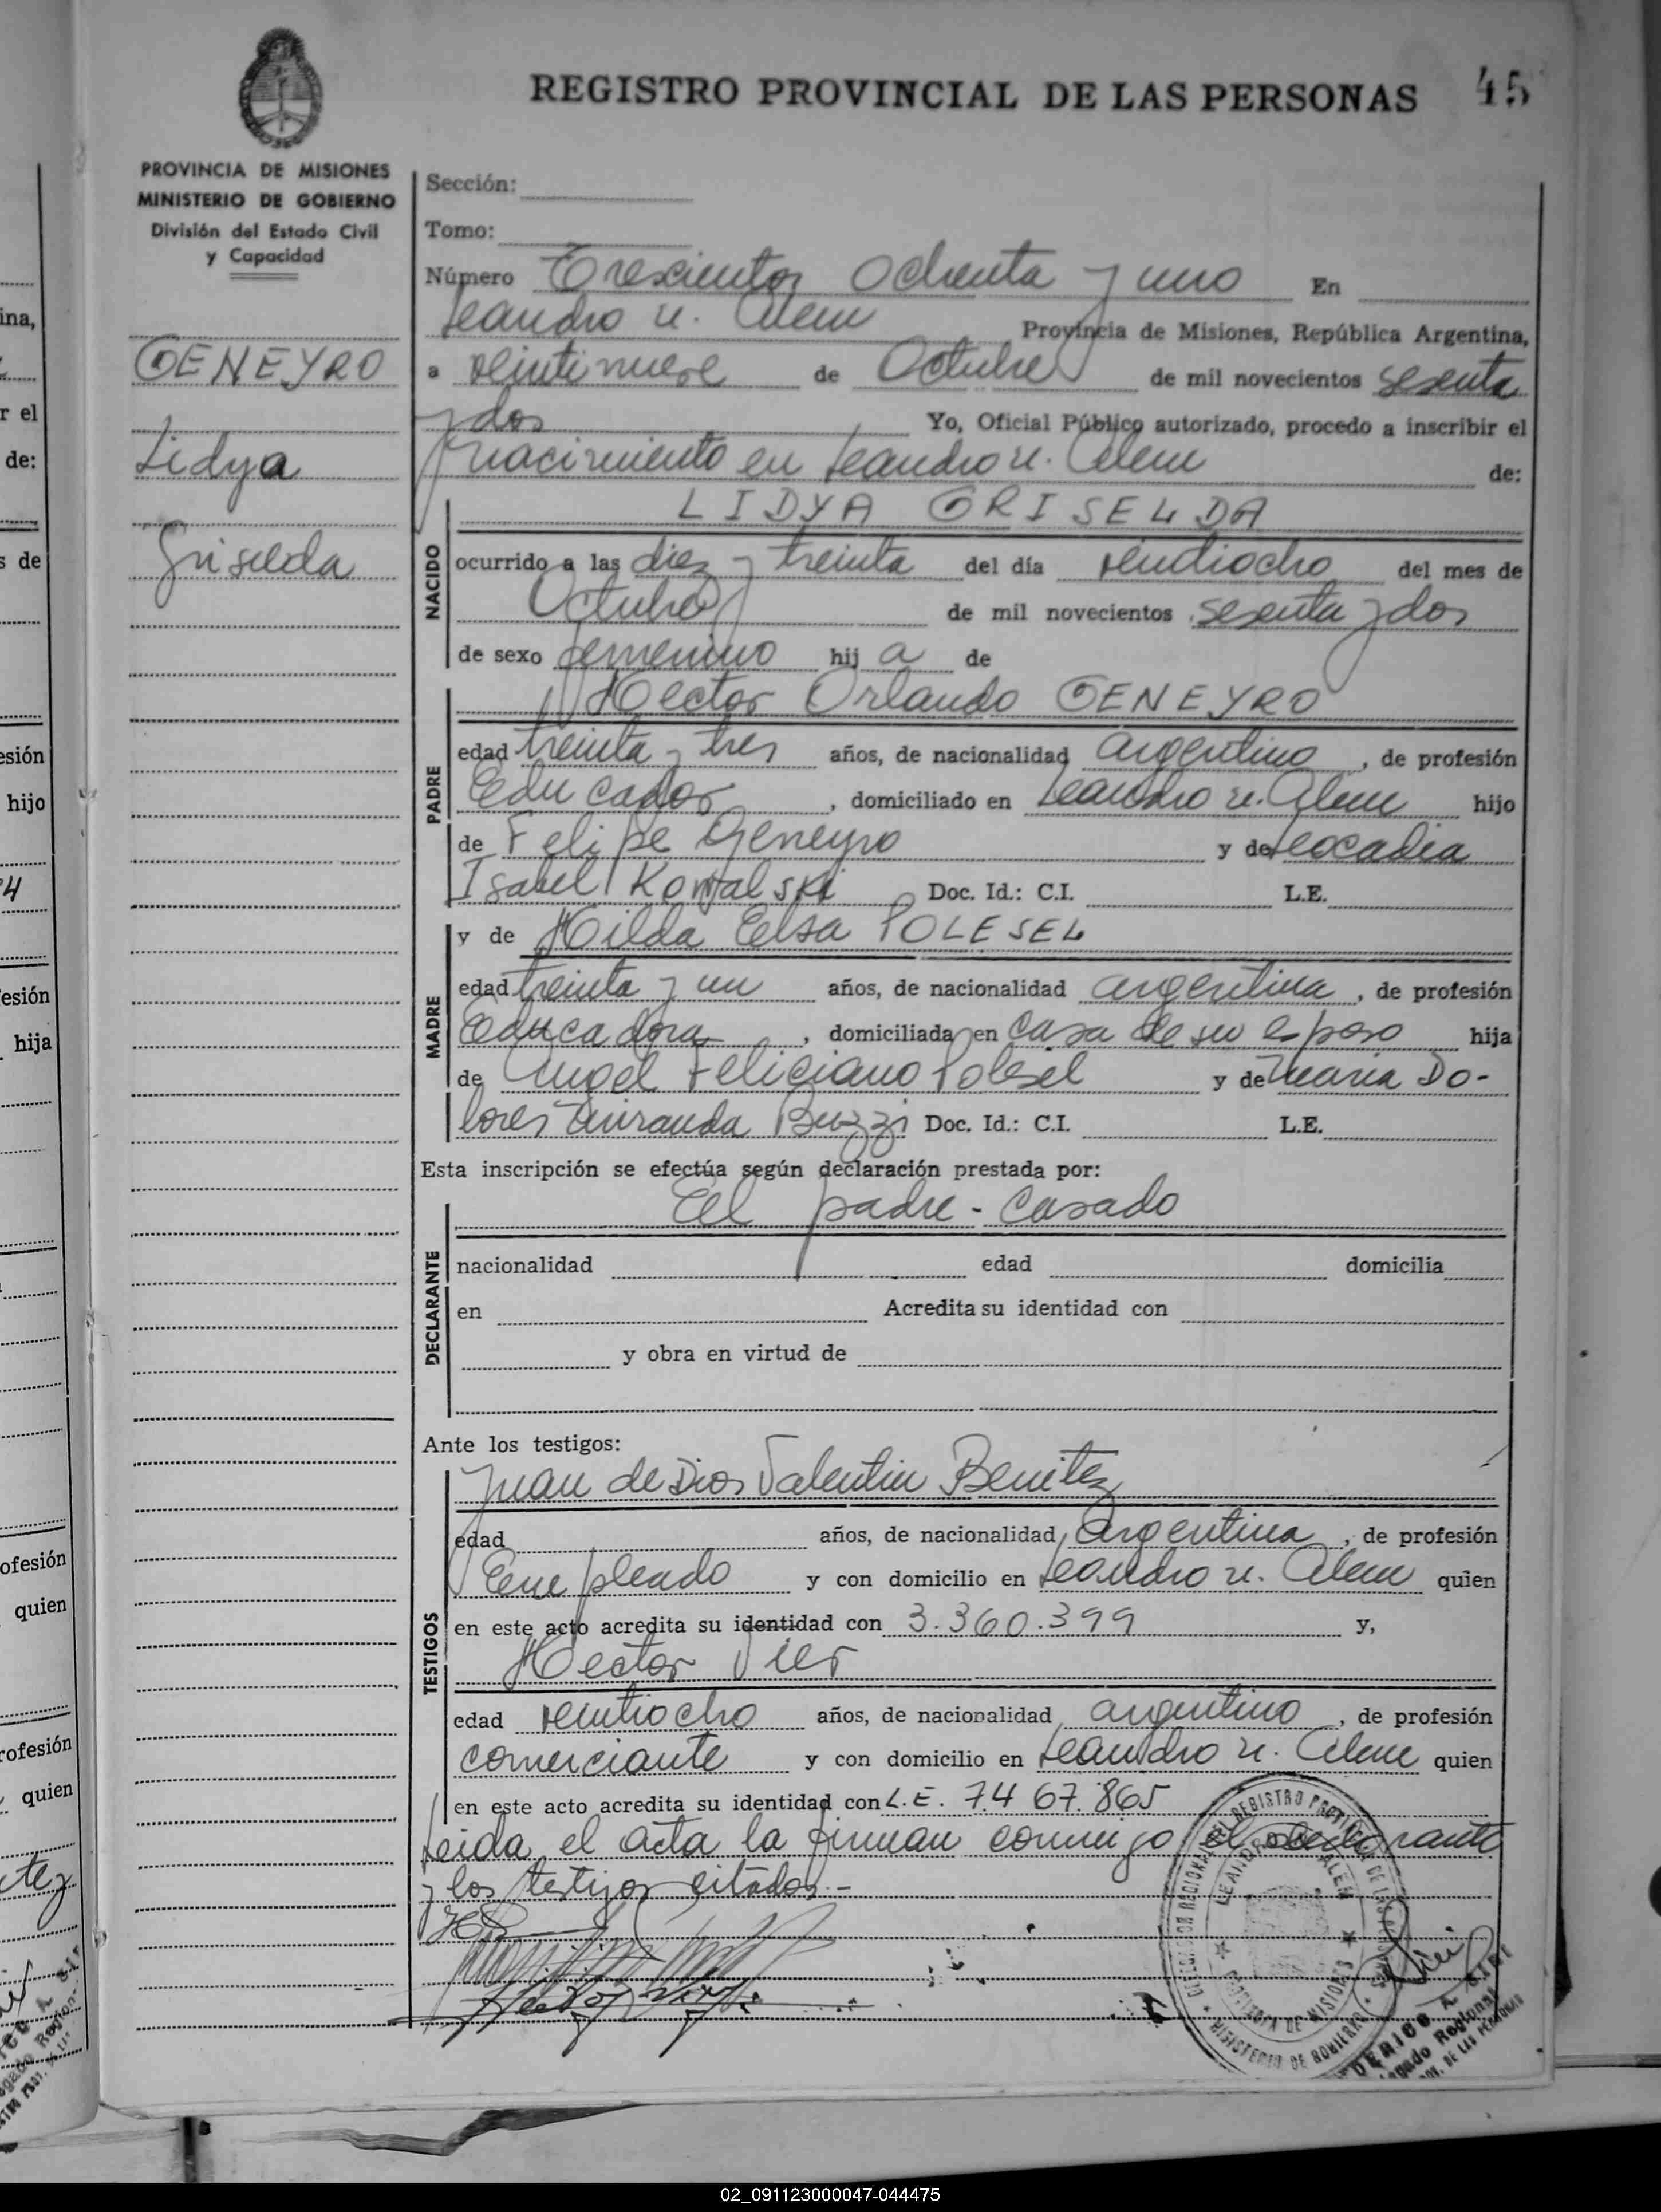 REGISTRO PROVINCIAL DE LAS PERSONAS 45
PROVINCIA DE MISIONES
MINISTERIO DE GOBIERNO
División del Estado Civil
y Capacidad
GENEYRO
Lidya
Griselda
Sección:
Tomo:
Número Trescientos Ochenta y uno En
Leandro N. Alem Provincia de Misiones, República Argentina,
a veintinueve de Octubre de mil novecientos sesenta
y dos Yo, Oficial Público autorizado, procedo a inscribir el
nacimiento en Leandro N. Alem de:
LIDYA GRISELDA
NACIDO
ocurrido a las diez y treinta del día veintiocho del mes de
Octubre de mil novecientos sesenta y dos
de sexo femenino hij a de
Hector Orlando GENEYRO
PADRE
edad treinta y tres años, de nacionalidad argentino, de profesión
Educador, domiciliado en Leandro N. Alem hijo
de Felipe Geneyro y de Leocadia
Isabel Kowalski Doc. Id.: C.I. L.E.
y de Hilda Elsa POLESEL
MADRE
edad treinta y un años, de nacionalidad argentina, de profesión
Educadora, domiciliada en casa de su esposo hija
de Angel Feliciano Polesel y de Maria Do-
lores Miranda Buzzi Doc. Id.: C.I. L.E.
Esta inscripción se efectúa según declaración prestada por:
El padre - Casado
DECLARANTE
nacionalidad edad domicilia
en Acredita su identidad con
y obra en virtud de
Ante los testigos:
Juan de Dios Valentin Benitez
TESTIGOS
edad años, de nacionalidad Argentina, de profesión
Empleado y con domicilio en Leandro N. Alem quien
en este acto acredita su identidad con 3.360.399 y,
Hector Vier
edad veintiocho años, de nacionalidad argentino, de profesión
comerciante y con domicilio en Leandro N. Alem quien
en este acto acredita su identidad con L.E. 7.467.865
Leida el acta la firman conmigo el declarante
y los testigos citados.-
LEANDRO N. ALEM
PROVINCIA DE MISIONES
MINISTERIO DE GOBIERNO
02_091123000047-044475